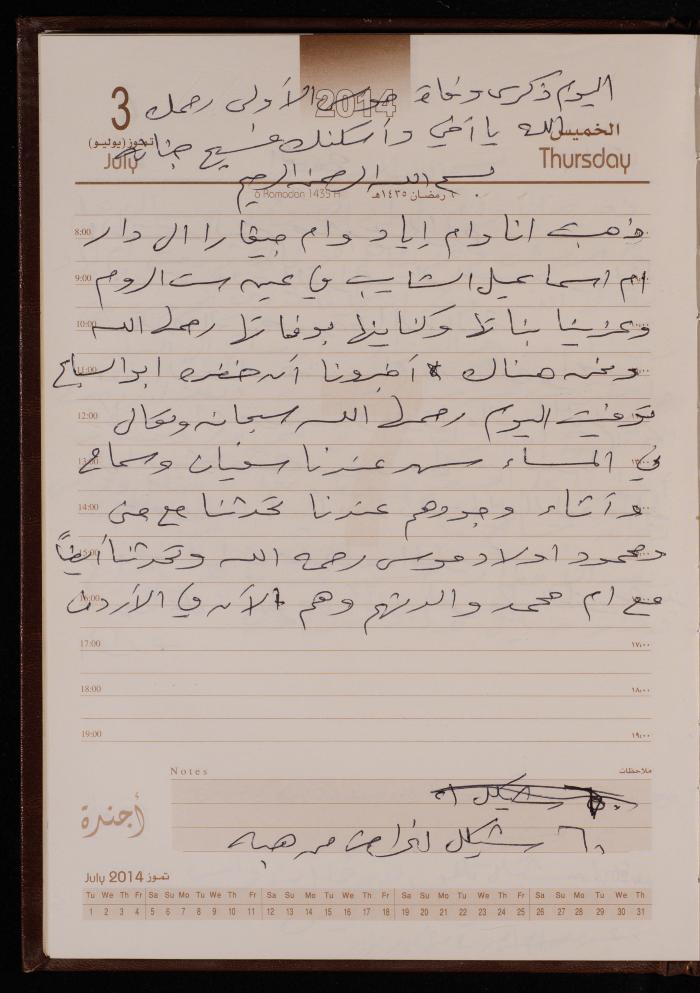 اليوم ذكرى وفاة موسى الأولى رحمك
2014
3
الله يا أخي وأسكنك فسيح جناته
الخميس
تموز (يوليو)
July
Thursday
بسم الله الرحمن الرحيم
6 Ramadan 1435 H
٦ رمضان ١٤٣٥هـ
8:00 ذهبت انا وام إياد وام جيفارا الى دار
9:00 ام اسماعيل الشايب في عين ست الروم
10:00 وعزينا بناتها وكناينها بوفاتها رحمها الله
11:00 ونحن هناك أخبرونا أن خضره ابو السباع
12:00 توفيت اليوم رحمها الله سبحانه وتعالى
13:00 في المساء سهر عندنا سفيان وسماح
14:00 وأثناء وجودهم عندنا تحدثنا مع
15:00 ومحمود اولاد موسى رحمه الله وتحدثنا أيضاً
16:00 مع ام محمد والدتهم وهم الآن في الأردن
17:00 ١٧:٠٠
18:00 ١٨:٠٠
19:00 ١٩:٠٠
Notes ملاحظات
شيكل
أجندة
٦٠ شيكل لغراض من هبه
July 2014 تموز
Tu We Th Fr Sa Su Mo Tu We Th Fr Sa Su Mo Tu We Th Fr Sa Su Mo Tu We Th Fr Sa Su Mo Tu We Th
1 2 3 4 5 6 7 8 9 10 11 12 13 14 15 16 17 18 19 20 21 22 23 24 25 26 27 28 29 30 31